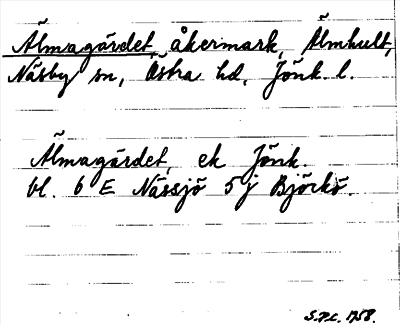 Älmagärdet, åkermark, Älmhult,
Näsby sn, Östra hd, Jönk. l.
Älmagärdet, ek Jönk.
bl. 6 E Nässjö 5j Björkö.
S.P.L. 1958.